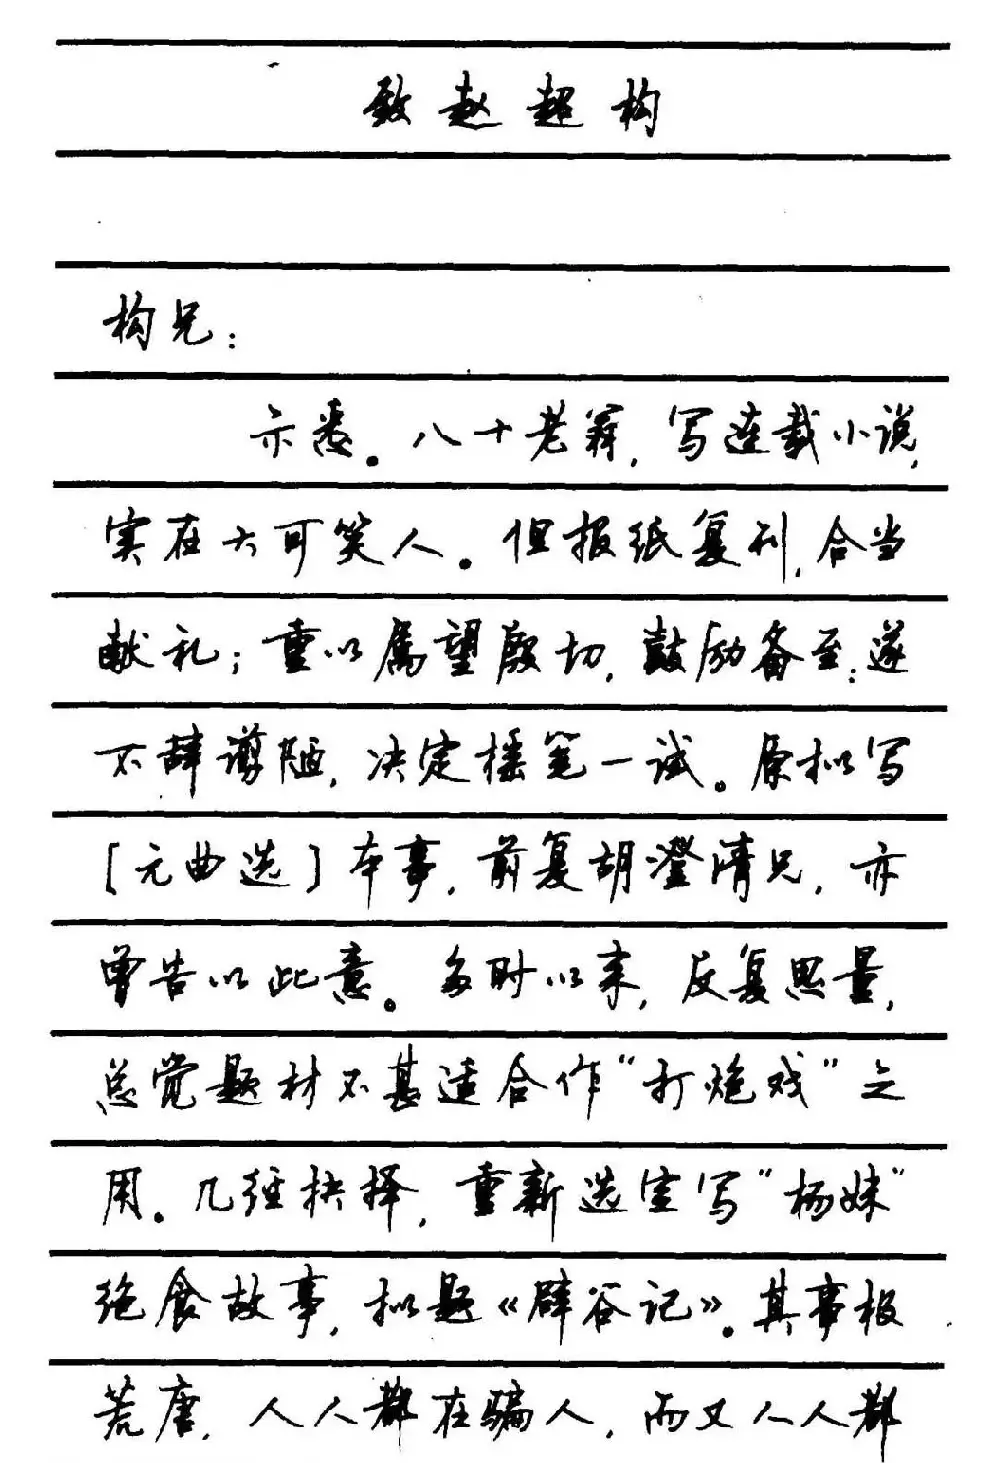 致赵超构
构兄：
示悉。八十老翁，写连载小说，
实在大可笑人。但报纸复刊，合当
献礼；重以属望殷切，鼓励备至；遂
不辞谫陋，决定摇笔一试。原拟写
［元曲选］本事，前复胡澄清兄，亦
曾告以此意。多时以来，反复思量，
总觉题材不甚适合作“打炮戏”之
用。几经抉择，重新选定写“杨妹”
绝食故事，拟题《辟谷记》。其事极
荒唐，人人都在骗人，而又人人都